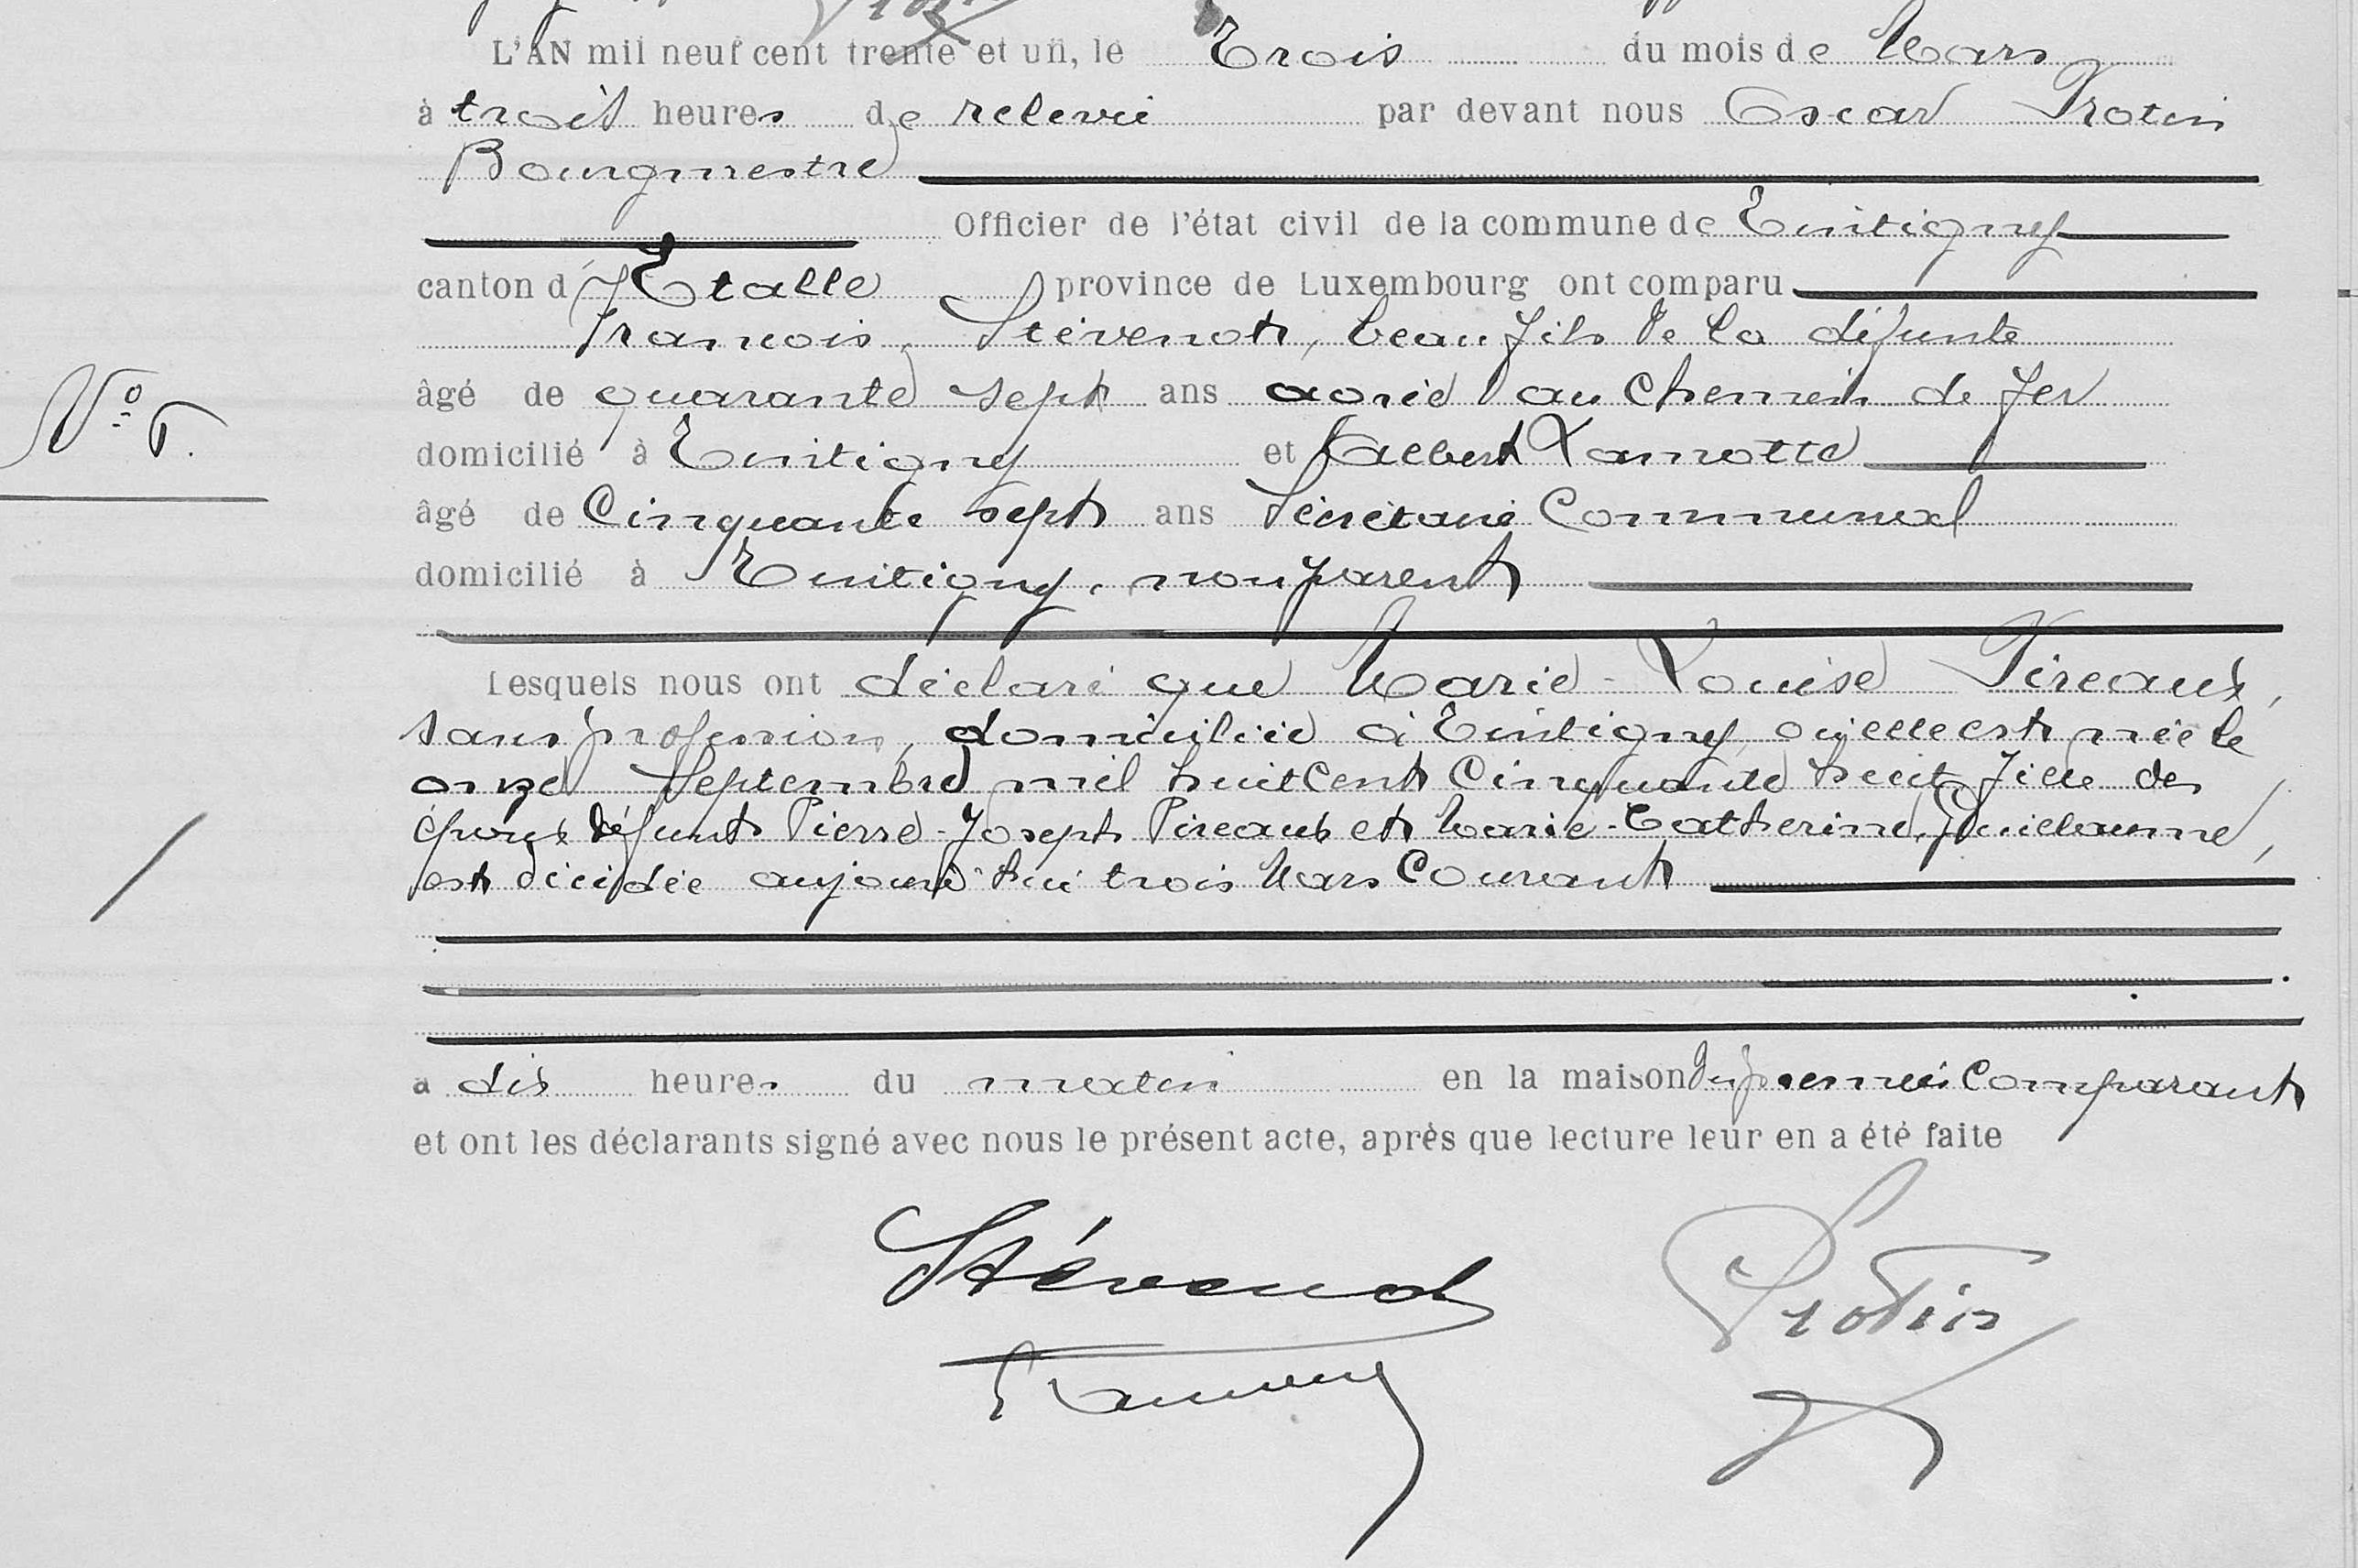 L'AN mil neuf cent trente et un, le Trois du mois de Mars
à trois heures de relevée par devant nous Oscar Protin
Bourgmestre
Officier de l'état civil de la commune de Tintigny
canton d'Etalle province de Luxembourg ont comparu
François Stévenot, beau fils de la défunte
âgé de quarante sept ans au chemin de fer
N° 5.
domicilié à Tintigny et Albert Lamotte
âgé de Cinquante sept ans Secrétaire Communal
domicilié à Tintigny, non parent
Lesquels nous ont déclaré que Marie-Louise Pireaux,
sans profession, domiciliée à Tintigny, où elle est née le
onze Septembre mil huit cent Cinquante huit, fille des
époux défunts Pierre-Joseph Pireaux et Marie-Catherine Guillaume,
est décédée aujourd'hui trois Mars Courant
a dix heures du matin en la maison du premier Comparant
et ont les déclarants signé avec nous le présent acte, après que lecture leur en a été faite
Stévenot
Protin